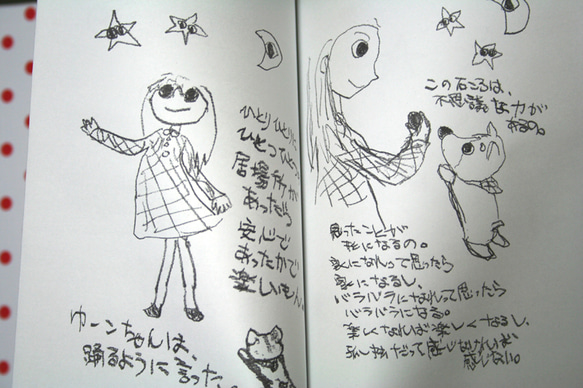 ひとりひとりに
ひとつひとつ
居場所が
あったら
安心で
あったかで
楽しいもん。
ゆーンちゃんは、
踊るように言った。
この石ころは、
不思議な力が
あるの。
思ったことが
形になるの。
丸になれって思ったら
丸になるし、
バラバラになれって思ったら
バラバラになる。
楽しくなれば楽しくなるし、
だって感じなければ
感じない。